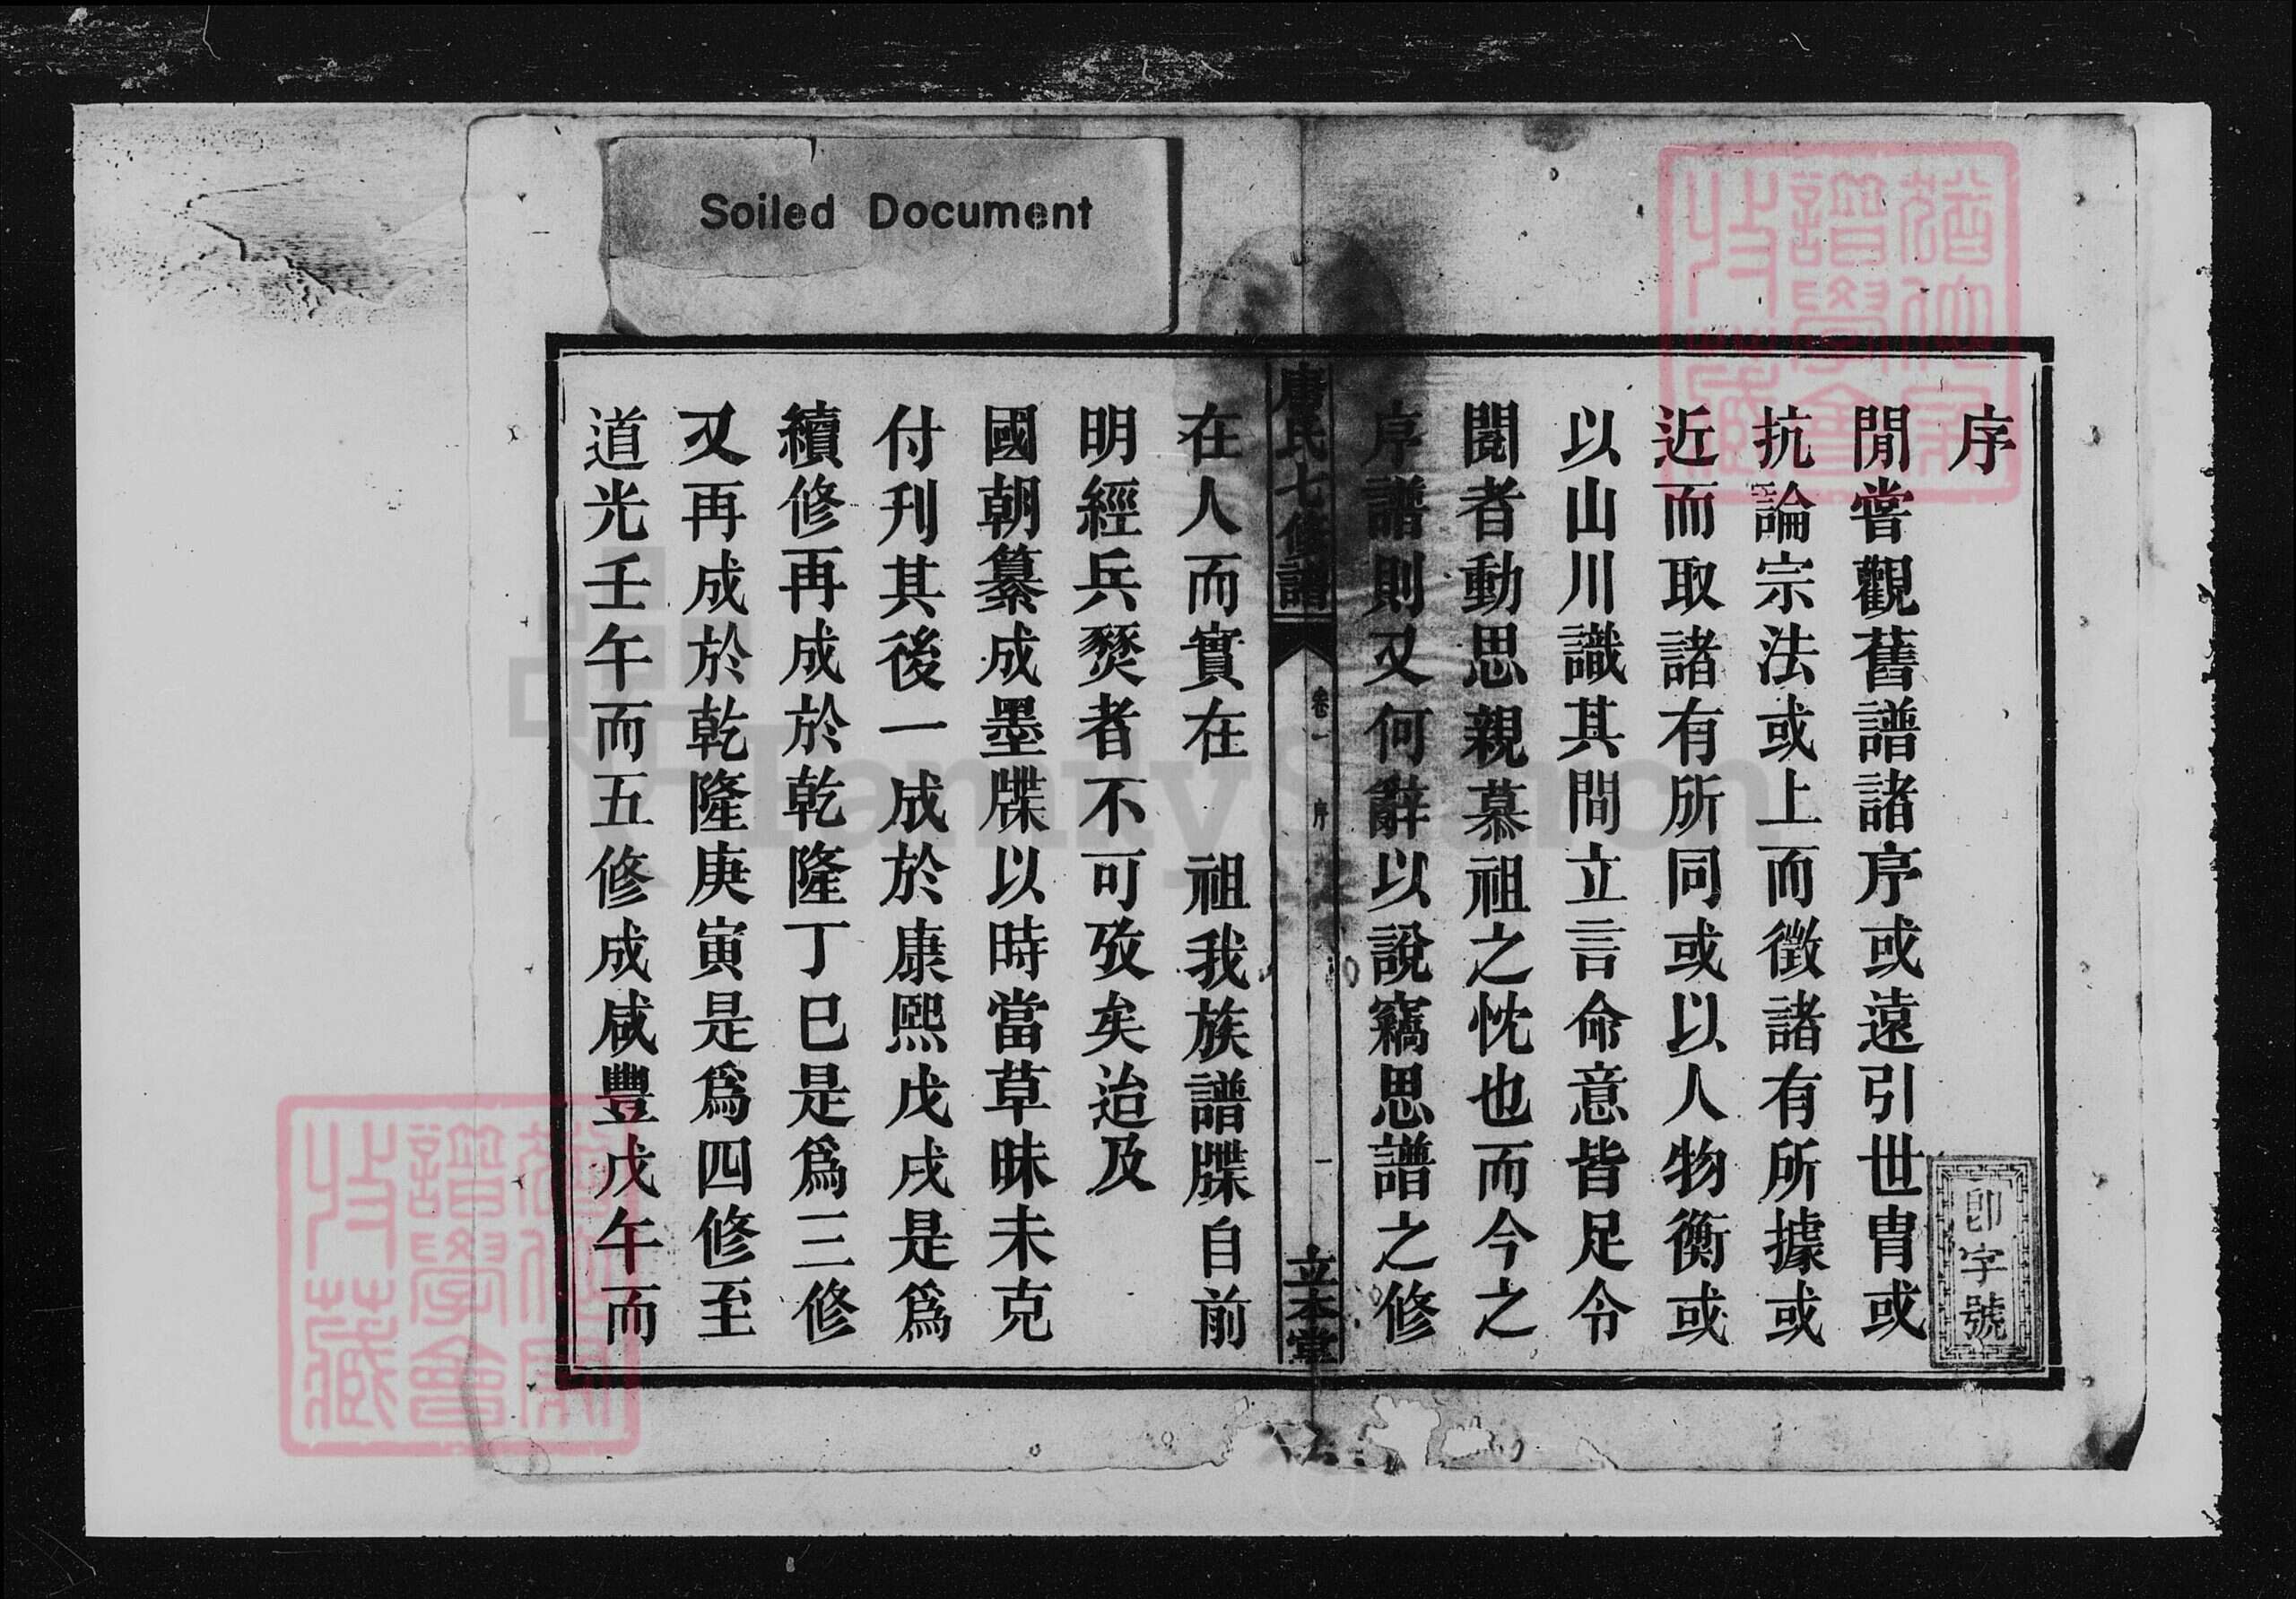 Soiled Document
序
閒嘗觀舊譜諸序或遠引世冑或
抗論宗法或上而徵諸有所據或
近而取諸有所同或以人物衡或
以山川識其間立言命意皆足令
閱者動思親慕祖之忱也而今之
序譜則又何辭以說竊思譜之修
唐氏七修譜
卷一
序
一
立本堂
在人而實在 祖我族譜牒自前
明經兵燹者不可攷矣迨及
國朝纂成墨牒以時當草昧未克
付刊其後一成於康熙戊戌是爲
續修再成於乾隆丁巳是爲三修
又再成於乾隆庚寅是爲四修至
道光壬午而五修成咸豐戊午而
卽字號
譜學會
收藏
譜學會
收藏